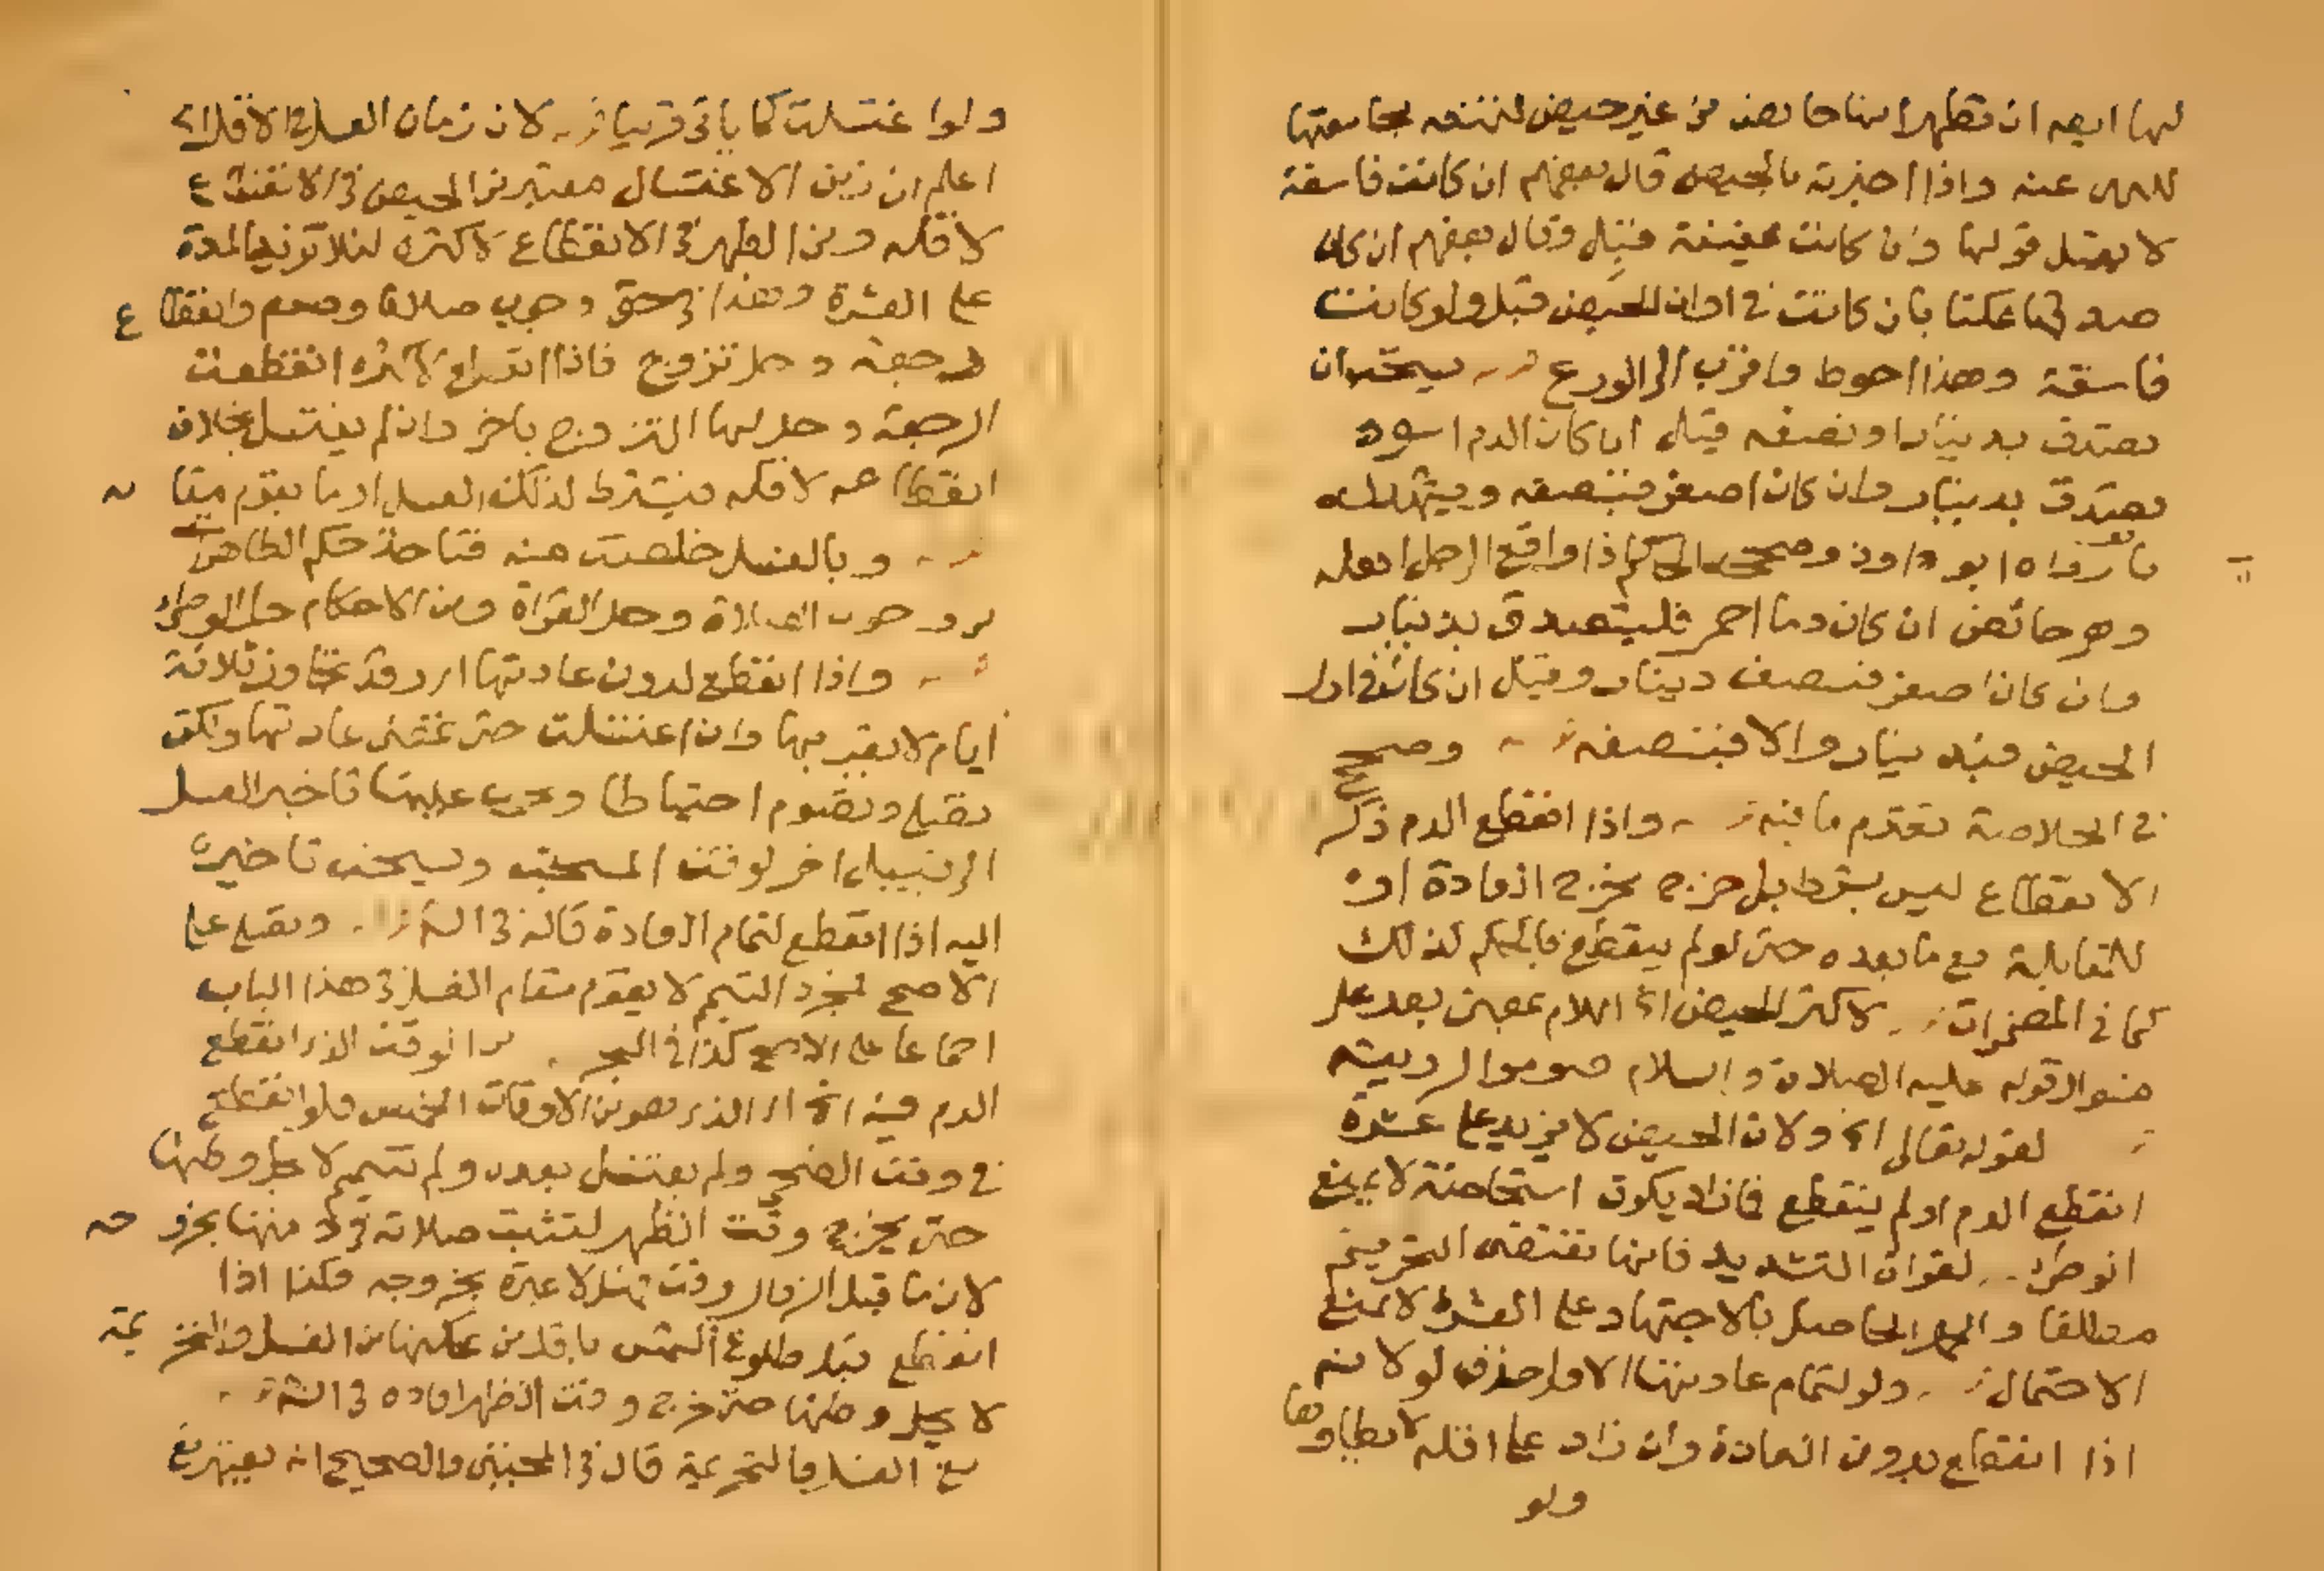 لها ايضا ان تظهر انها حائض من غير حيض لتمنعه مجامعتها
للنهى عنه واذا اخبرته بالحيض قال بعضهم ان كانت فاسقة
لا يقبل قولها وان كانت عفيفة قبل وقال بعضهم ان كان
صدقها ممكنا بان كانت فى اوان الحيض قبل ولو كانت
فاسقة وهذا احوط واقرب الى الورع يستحب ان
يتصدق بدينار او نصفه قيل ان كان الدم اسود
يتصدق بدينار وان كان اصفر فبنصفه ويشهد له
ما رواه ابو داود وصححه الحاكم اذا واقع الرجل اهله
وهى حائض ان كان دما احمر فليتصدق بدينار
وان كان اصفر فنصف دينار وقيل ان كان فى اول
الحيض فبدينار والا فبنصفه وصحح
فى الخلاصة تقدم ما فيه واذا انقطع الدم ذكر
الانقطاع ليس بشرط بل خرج مخرج العادة او
للمقابلة مع ما بعده حتى لو لم ينقطع فالحكم كذلك
كما فى المضمرات لاكثر الحيض اى اللام بمعنى بعد على
منوال قوله عليه الصلاة والسلام صوموا لرؤيته
لقوله تعالى الخ ولان الحيض لا يزيد على عشرة
انقطع الدم او لم ينقطع فاذا يكون استحاضة لا يمنع
الوطئ لقراة التشديد فانها تقتضى التحريم
مطلقا والحمل الحاصل بالاجتهاد على العشرة لا يمنع
الاحتمال ولو لتمام عادتها الاولى حذف لو لانه
اذا انقطع بدون العادة وان زاد على اقله لا يطاوها
ولو
ولو اغتسلت كما ياتى قريبا لان زمان الغسل فى الاقل الخ
اعلم ان زمن الاغتسال معتبر من الحيض فى الانقطاع
لاقله ومن الطهر فى الانقطاع لاكثره لئلا تزيد المدة
على العشرة وهذا فى حق وجوب صلاة وصوم وانقطاع
رجعة وحل تزوج فاذا انقطع لاكثره انقطعت
الرجعة وحل لها التزوج باخر وان لم تغتسل بخلاف
انقطاعه لاقله فيشترط لذلك الغسل او ما يقوم مقامه
وبالغسل خلصت منه فتاخذ حكم الطاهرات
من وجوب الصلاة وحل القراة ومن الاحكام حل الوطئ
واذا انقطع لدون عادتها اى وقد تجاوز ثلاثة
ايام لا يقربها وان اغتسلت حتى تمضى عادتها ولكن
تصلى وتصوم احتياطا ويجب عليها تاخير الغسل
الى قبيل اخر لوقت المستحب ويستحب تاخيره
اليه اذا انقطع لتمام العادة قاله فى الشر وتصلى على
الاصح لمجرد التيمم لا يقوم مقام الغسل فى هذا الباب
اجماعا على الاصح كذا فى البحر من الوقت الذى انقطع
الدم فيه الخ اى الذى هو من الاوقات الخمس فلو انقطع
فى وقت الضحى ولم تغتسل بعده ولم تتيمم لا يحل وطئها
حتى يخرج وقت الظهر لتثبت صلاته فى ذمتها بخروجه
لان ما قبل الزوال وقت مهمل لا عبرة بخروجه وكذا اذا
انقطع قبل طلوع الشمس باقل من تمكنها من الغسل والتحريمة
لا يحل وطئها حتى خرج وقت الظهر افاده فى الشر
يسع الغسل والتحريمة قال فى المجتبى والصحيح انه يعتبر مع